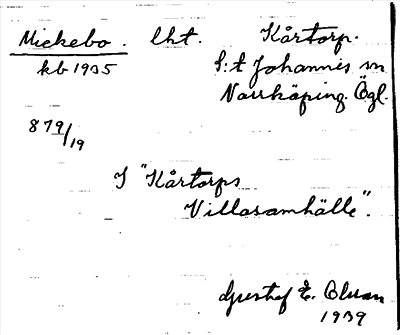 Mickebo. lht. Kårtorp.
kb 1935 S:t Johannis sn
Norrköping. Ögl.
879/19
I "Kårtorps
Villasamhälle".
Gustaf E.
1939